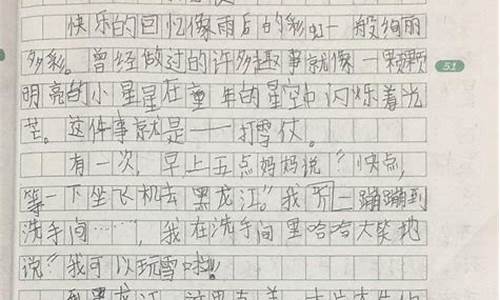 快乐的回忆像雨后的彩虹一般绚丽
多彩。曾经做过的许多趣事就像一颗颗
51
明亮的小星星在童年的星空中闪烁着光
芒。这件事就是——打雪仗。
有一次,早上五点妈妈说“快点,
等一下坐飞机去黑龙江。”我一蹦蹦到
洗手间……,我在洗手间里哈哈大笑地
说“我可以玩雪啦!